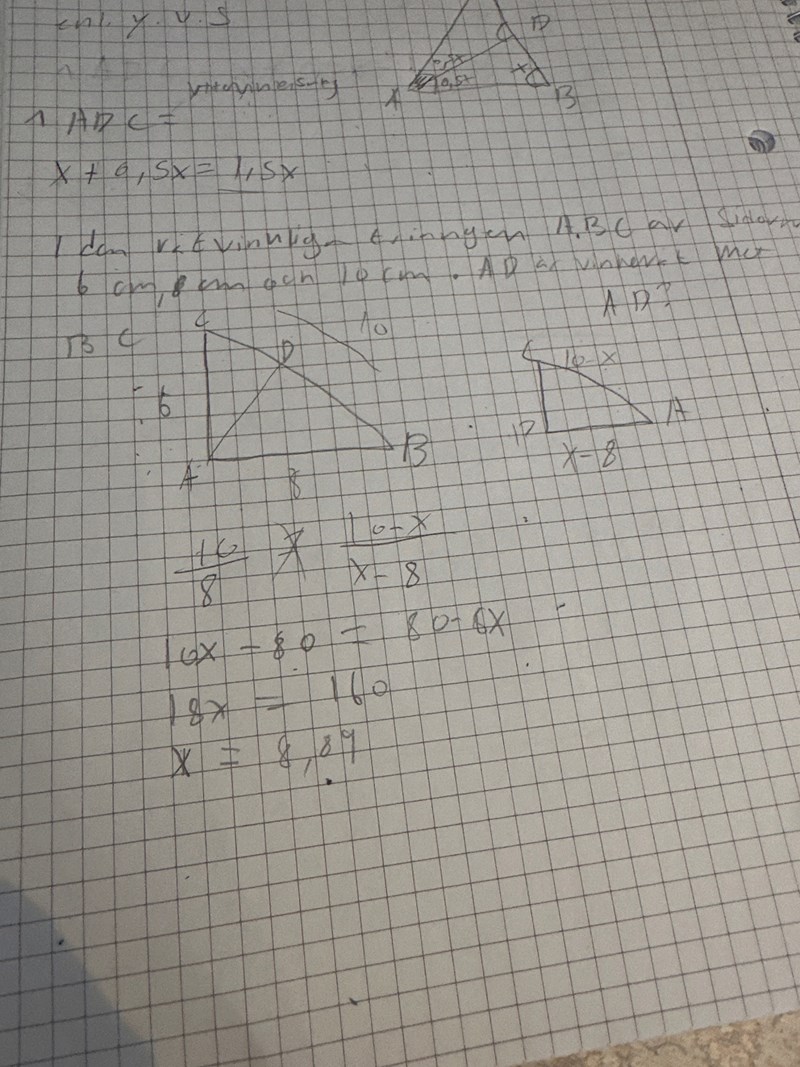 enl. y.v.s
D
0,5x
x
A
B
yttervinkelsats
1 ADC =
x + 0,5x = 1,5x
I den rätvinkliga triangen ABC är sidorna
6 cm, 8 cm och 10 cm. AD är vinkelrät mot
AD?
B C
C
10
D
6
A
B
8
C
10-x
D
A
x-8
10/8
10-x/x-8
10x - 80 = 80-8x
18x = 160
x = 8,89